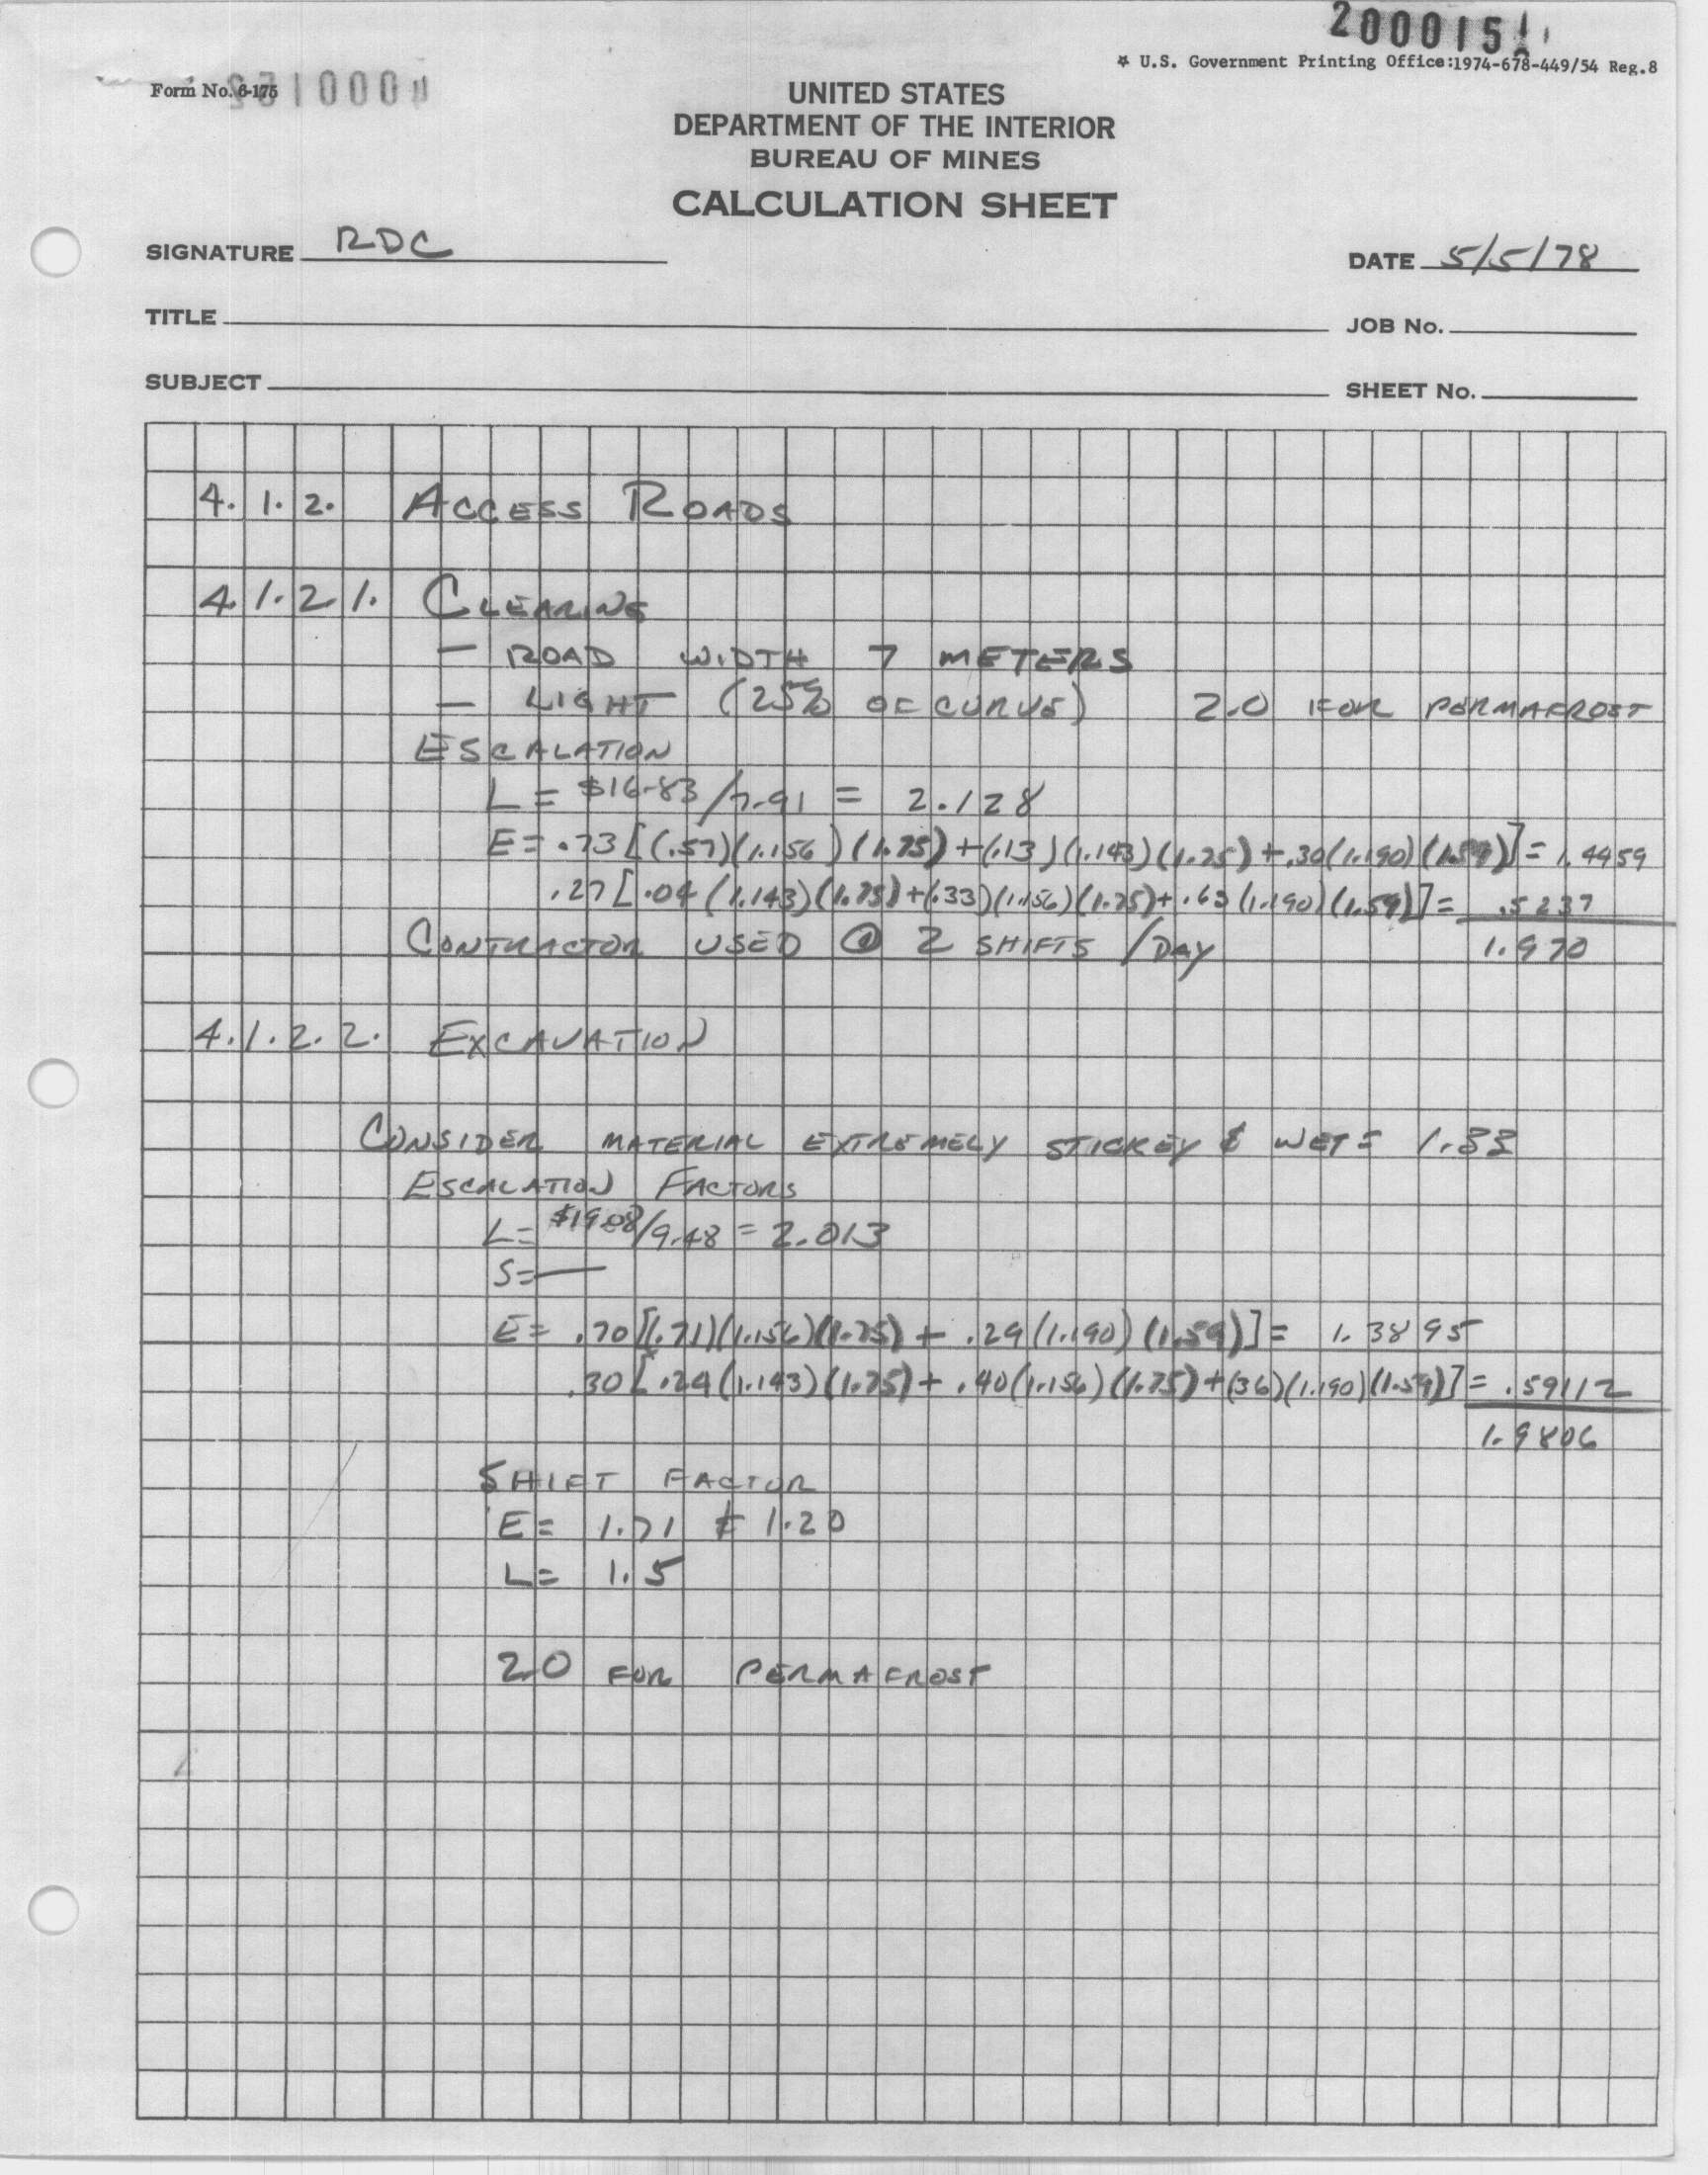 200015
☆ U.S. Government Printing Office:1974-678-449/54 Reg.8
Form No. 6-175
UNITED STATES
DEPARTMENT OF THE INTERIOR
BUREAU OF MINES
CALCULATION SHEET
SIGNATURE RDC
DATE 5/5/78
TITLE
JOB No.
SUBJECT
SHEET No.
4.1.2. ACCESS ROADS
4.1.2.1. CLEARING
— ROAD WIDTH 7 METERS
— LIGHT (25% OF CURVE) 2.0 FOR PERMAFROST
ESCALATION
L = $16.83/7.91 = 2.128
E = .73[(.57)(1.156)(1.75)+(.13)(1.143)(1.75)+.30(1.190)(1.59)] = 1.4459
.27[.04(1.143)(1.75)+(.33)(1.156)(1.75)+.63(1.190)(1.59)] = .5237
1.970
CONTRACTOR USED @ 2 SHIFTS /DAY
4.1.2.2. EXCAVATION
CONSIDER MATERIAL EXTREMELY STICKEY & WET = 1.33
ESCALATION FACTORS
L = $19.08/9.48 = 2.013
S = —
E = .70[(.71)(1.156)(1.75) + .29(1.190)(1.59)] = 1.3895
.30[.24(1.143)(1.75) + .40(1.156)(1.75)+(36)(1.190)(1.59)] = .59112
1.9806
SHIFT FACTOR
E = 1.71 & 1.20
L = 1.5
2.0 FOR PERMAFROST